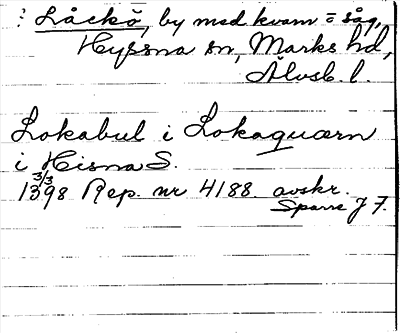 : Låckö, by med kvarn = såg,
Hyssna sn, Marks hd,
Älvsb. l.
Lokabul i Lokaquærn
i Hisna S.
13 3/3 98 Rep. nr 4188 avskr.
Sparre J 7.